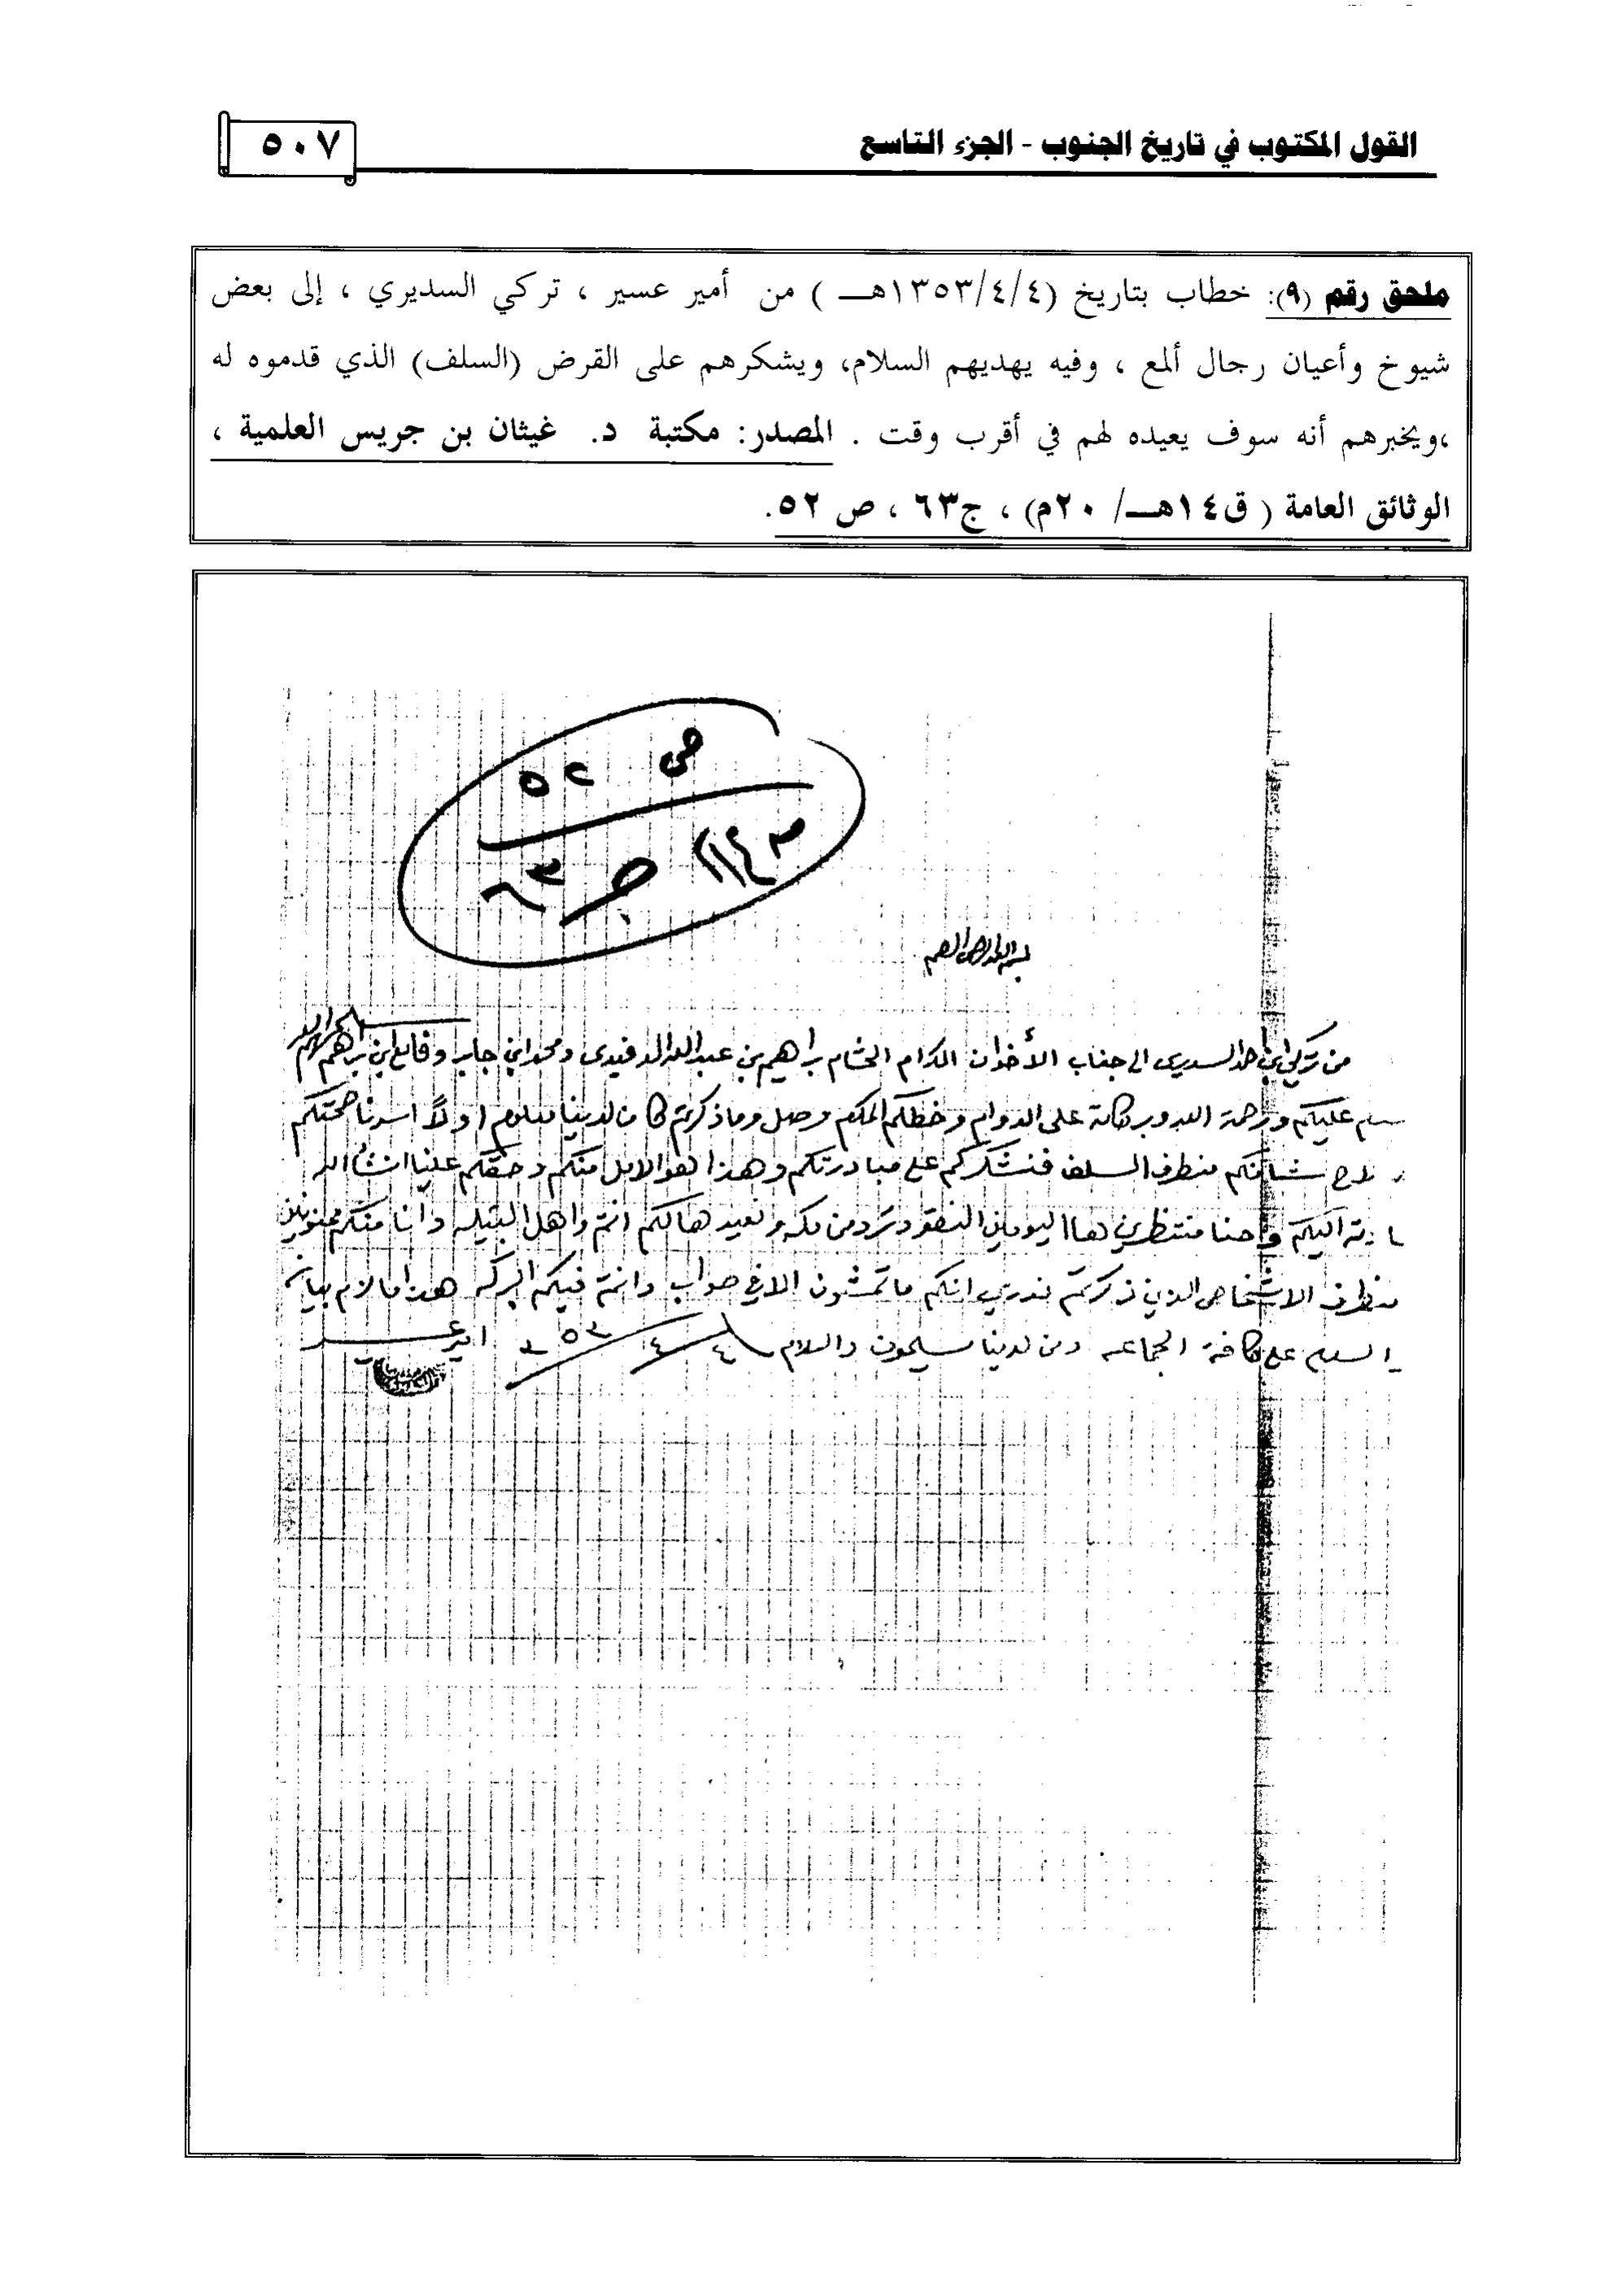 القول المكتوب في تاريخ الجنوب - الجزء التاسع
٥٠٧
ملحق رقم (٩): خطاب بتاريخ (١٣٥٣/٤/٤هـ) من أمير عسير ، تركي السديري ، إلى بعض
شيوخ وأعيان رجال ألمع ، وفيه يهديهم السلام، ويشكرهم على القرض (السلف) الذي قدموه له
،ويخبرهم أنه سوف يعيده لهم في أقرب وقت . المصدر: مكتبة د. غيثان بن جريس العلمية ،
الوثائق العامة ( ق١٤هـ/ ٢٠م) ، ج٦٣ ، ص ٥٢.
ص ٥٢
ج ٦٣
بسم الله الرحمن الرحيم
من تركي ابن حمد السديري الى جناب الأخوان المكرام الحشام براهيم بن عبدالله الدفيدي ومحمد ابن جابر وفايع ابن براهيم
عليكم ورحمة الله وبركاته على الدوام وخطكم المكرم وصل وما ذكرتم كان لدينا معلوم اولاً اسرنا صحتكم
منطرف السلف فنشكركم على مبادرتكم وهذا هو الامل منكم وحقكم علينا انشاء الله
اليكم واحنا منتظرين هااليومين النقود ترد من مكه ونعيدها لكم انتم واهل البتيله وانا منكم ممنونين
منطرف الاشخاص الذين ذكرتم ندري انكم ما تمشون الا في صواب وانتم فيكم البركه هذا ما لزم بيانه
السلام على كافة الجماعه ومن لدينا يسلمون والسلام ٤/٤/٥٣ امير عسير